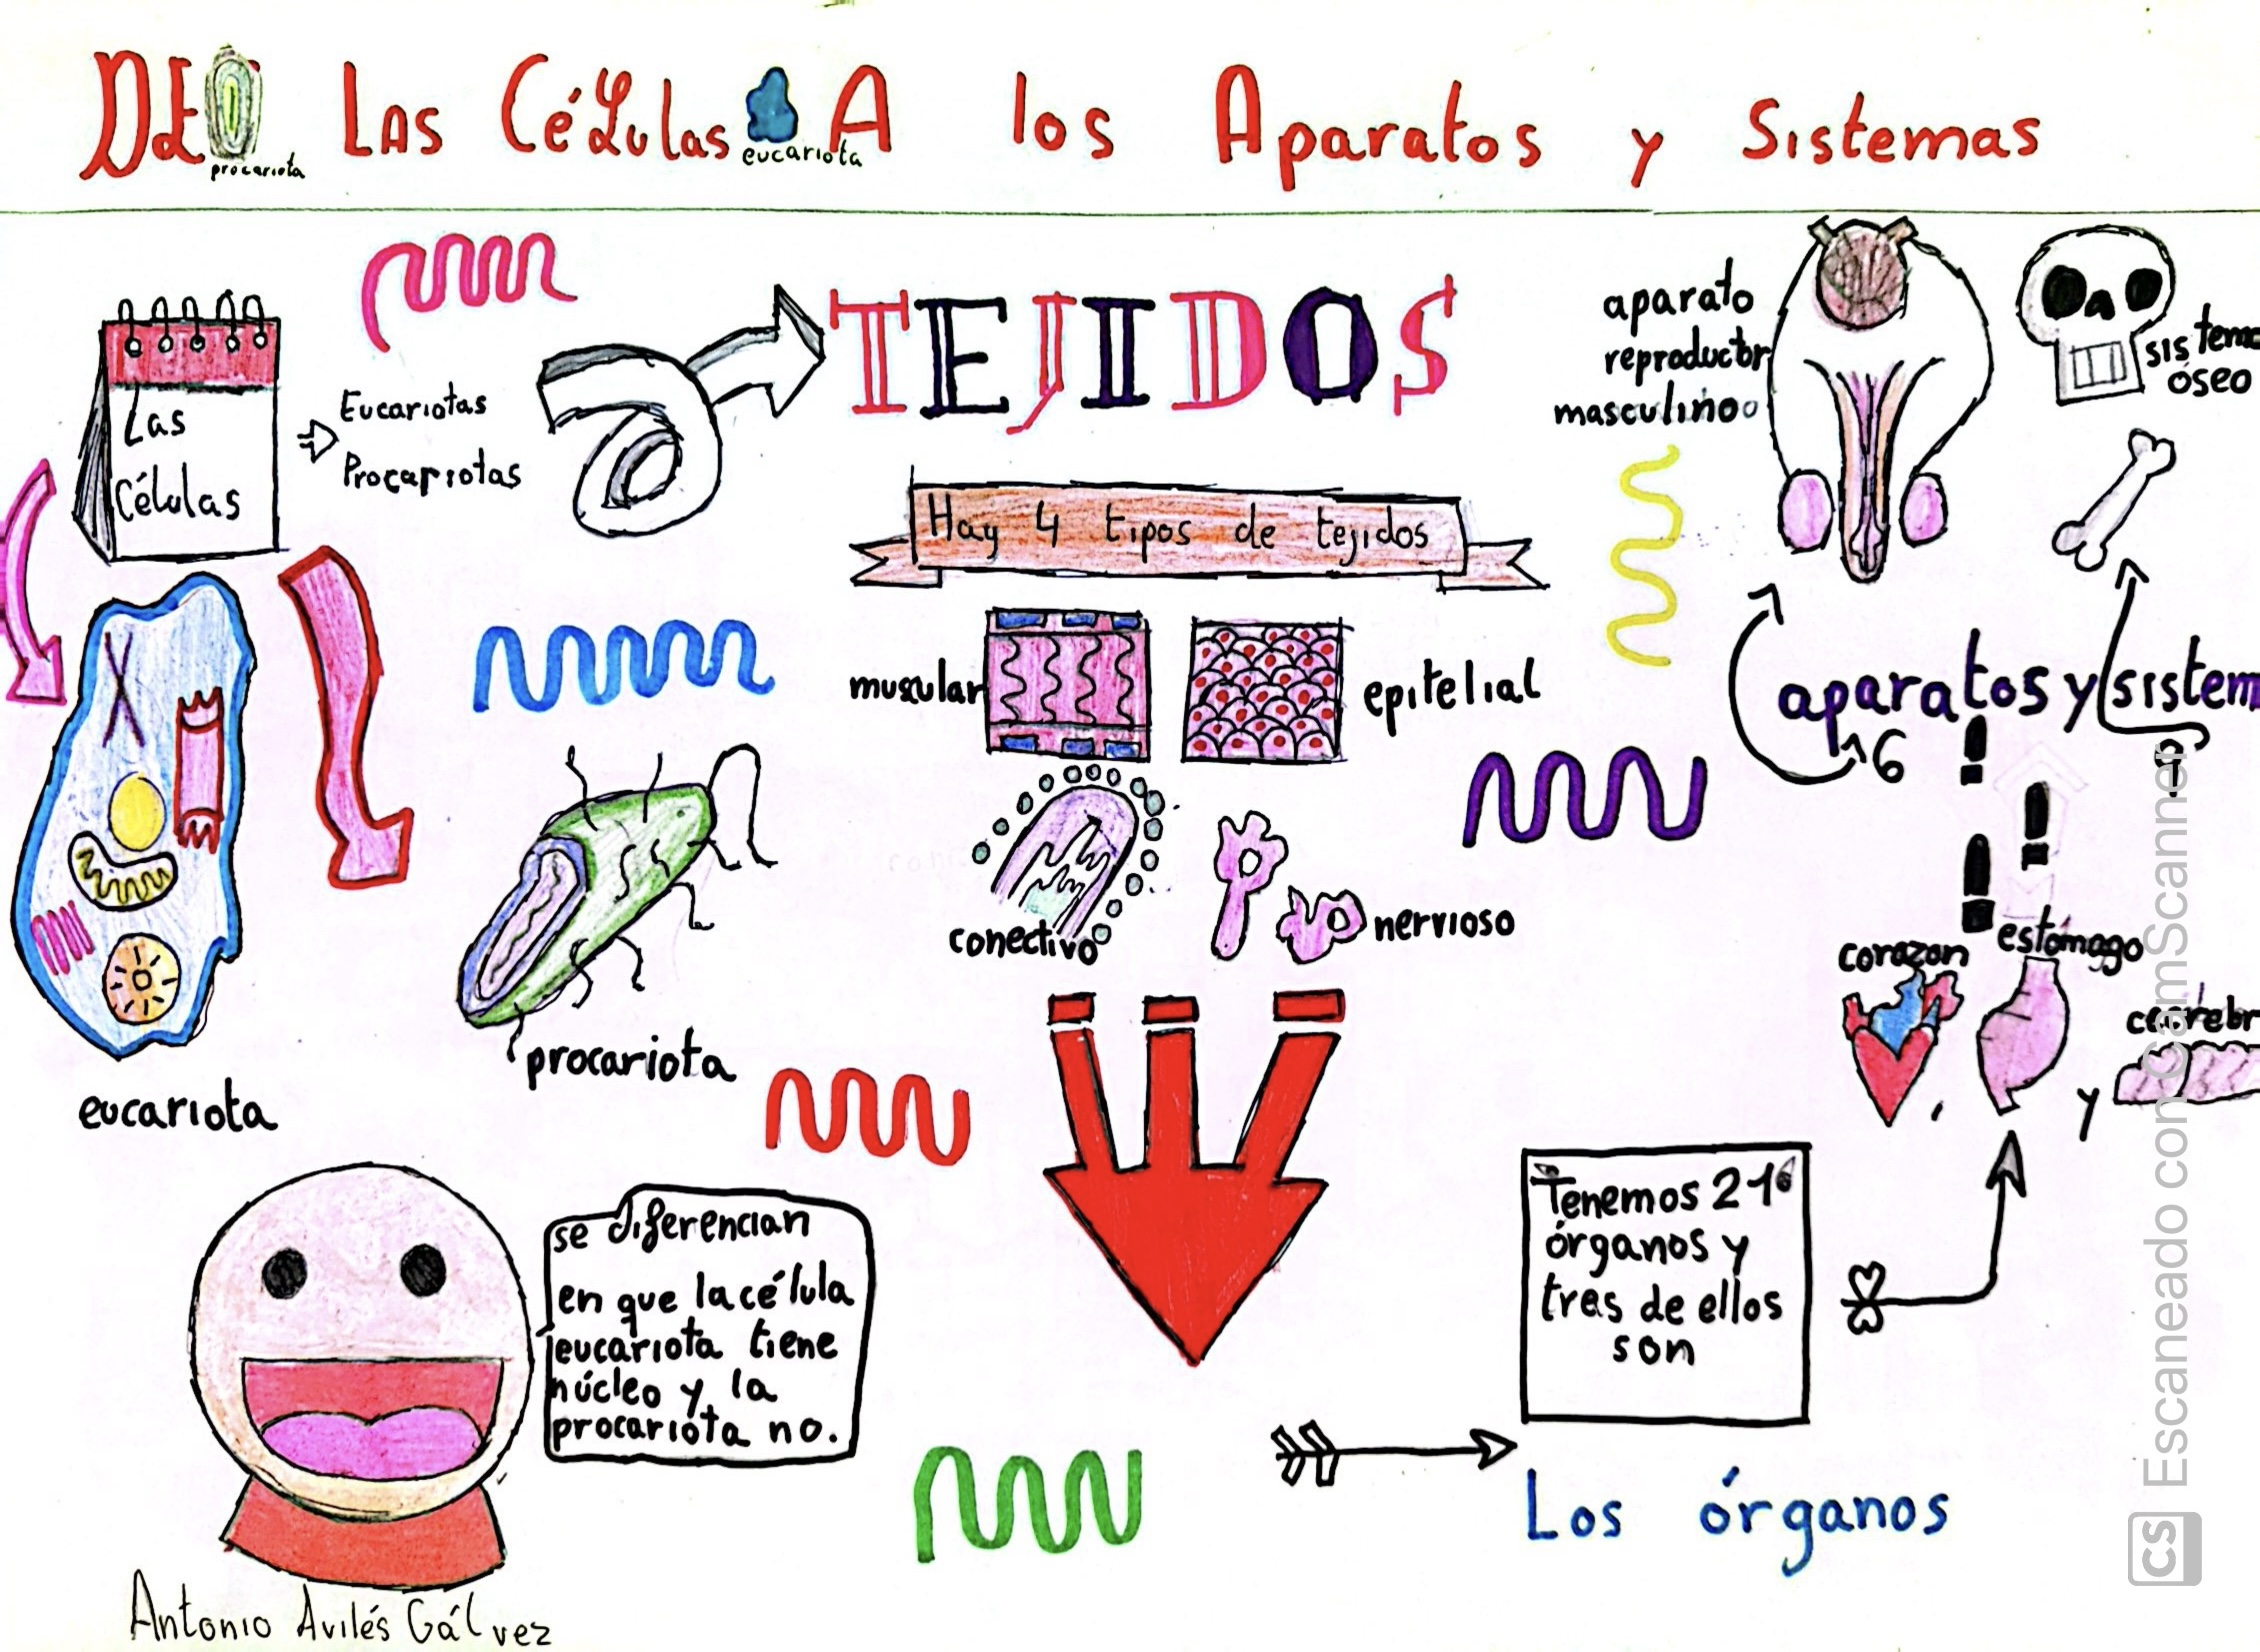 DE LAS CéLulas A los Aparatos y Sistemas
procariota
eucariota
Las
Células
Eucariotas
Procariotas
TEJIDOS
Hay 4 tipos de tejidos
musular
epitelial
conectivo
nervioso
aparato
reproductor
masculino
sistema
óseo
aparatos y sistem
6
corazon
estómago
y
eucariota
procariota
se diferencian
en que la célula
eucariota tiene
núcleo y la
procariota no.
Tenemos 216
órganos y
tres de ellos
son
Los órganos
Antonio Avilés Gálvez
CS Escaneado con CamScanner